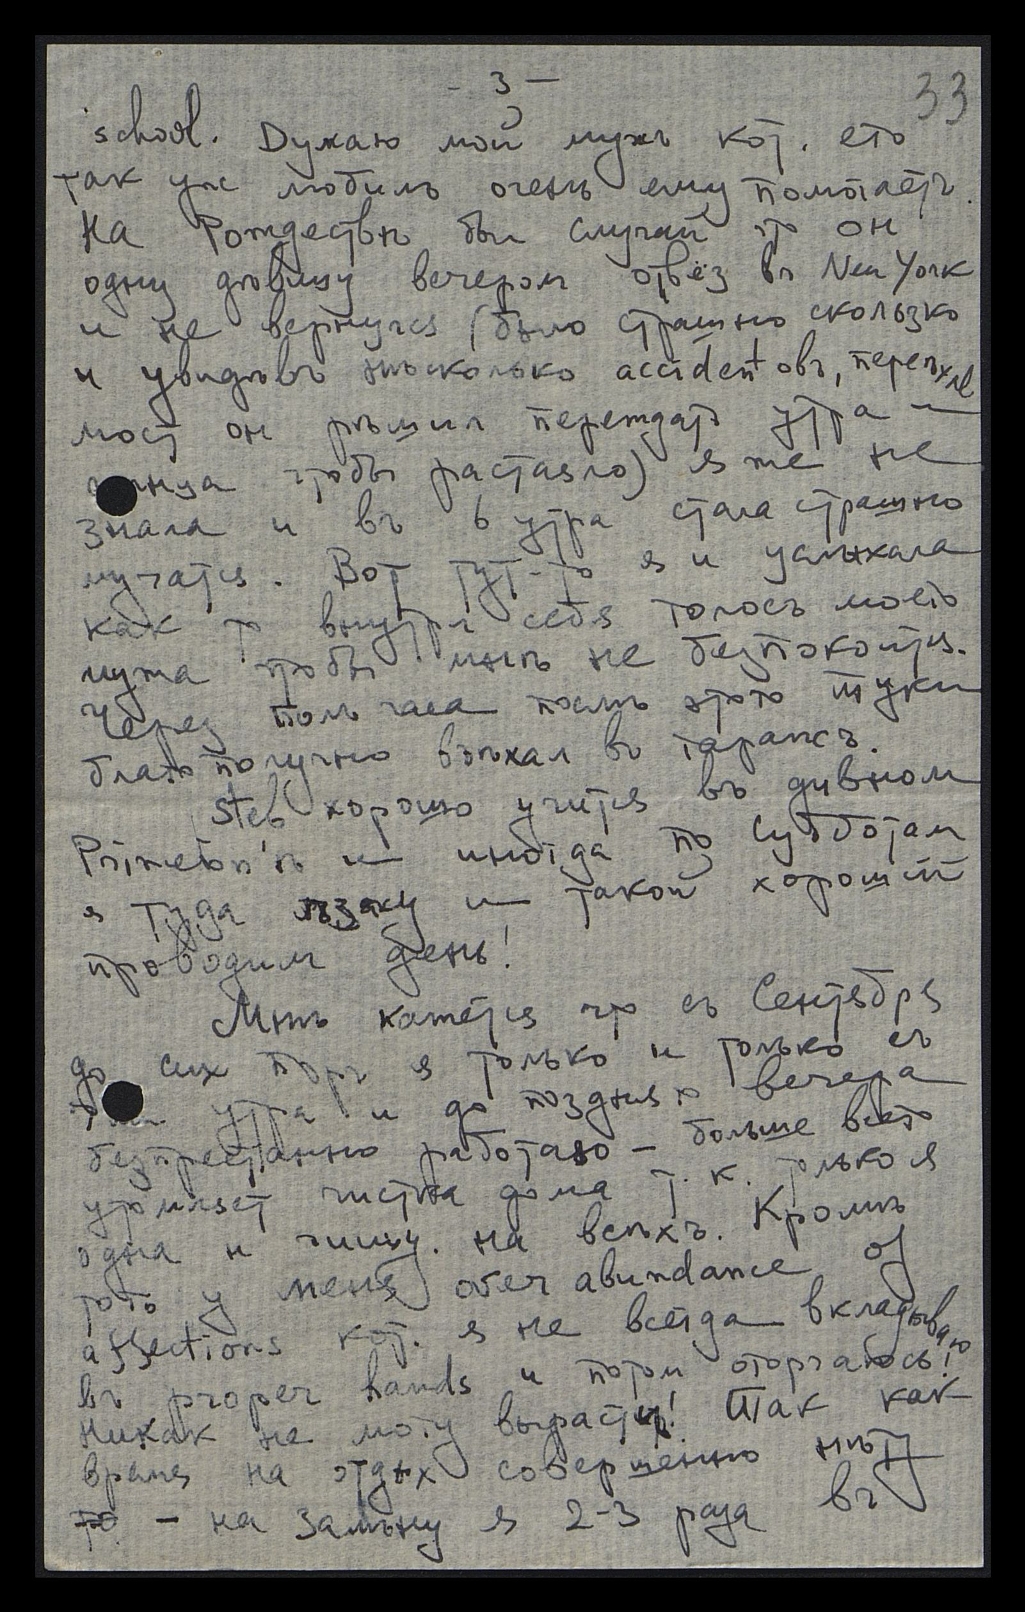 - 3 -
33
school. Думаю мой мужъ кот. его
так уж любилъ очень ему помогаетъ.
На Рождествѣ был случай что он
одну дѣвицу вечеромъ отвёз въ New York
и не вернулся (было страшно скользко
и увидѣвъ нѣсколько accidentовъ, переѣхав
мост он рѣшилъ переждать утра и
солнца чтобы растаяло) я же не
знала и въ 6 утра стала страшно
мучатся. Вот тут-то я и услыхала
как то внутри себя голосъ моего
мужа чтобы мнѣ не безпокоится.
Черезъ полъ часа послѣ этого Шуки
благополучно въѣхал въ гаражъ.
Steb хорошо учится въ дивном
Princeton'ѣ и иногда по Субботам
я туда ѣзжу и такой хороший
проводим день!
Мнѣ кажется что съ Сентября
до сих поръ я только и только съ
утра и до поздняго вечера
безпрестанно работаю - больше всего
утомляет чистка дома т. к. только я
одна и чищу на всѣхъ. Кромѣ
того у меня over abundance of
affections кот. я не всегда вкладываю
въ proper hands и потом огорчаюсь!
Никак не могу вырасти! Так как
время на отдых совершенно нѣту
то - на замѣну я 2-3 раза въ